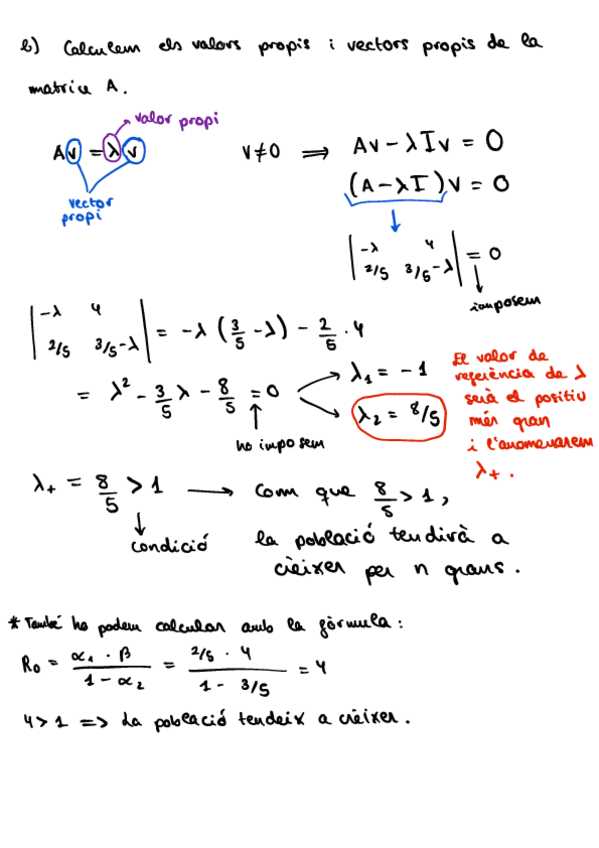 b) Calculem els valors propis i vectors propis de la
matriu A.
valor propi
Av = λv   v≠0 ⟹ Av - λIv = 0
(A - λI)v = 0
vector
propi
| -λ 4 |
| 2/5 3/5-λ | = 0
imposem
| -λ 4 |
| 2/5 3/5-λ | = -λ (3/5 - λ) - 2/5 · 4
= λ² - 3/5 λ - 8/5 = 0
λ₁ = -1
λ₂ = 8/5
ho imposem
El valor de
referència de λ
serà el positiu
més gran
i l'anomenarem
λ₊.
λ₊ = 8/5 > 1 → Com que 8/5 > 1,
condició
la població tendirà a
crèixer per n grans.
* També ho podem calcular amb la fòrmula:
R₀ = α₁ · β / 1 - α₂ = 2/5 · 4 / 1 - 3/5 = 4
4 > 1 => La població tendeix a crèixer.